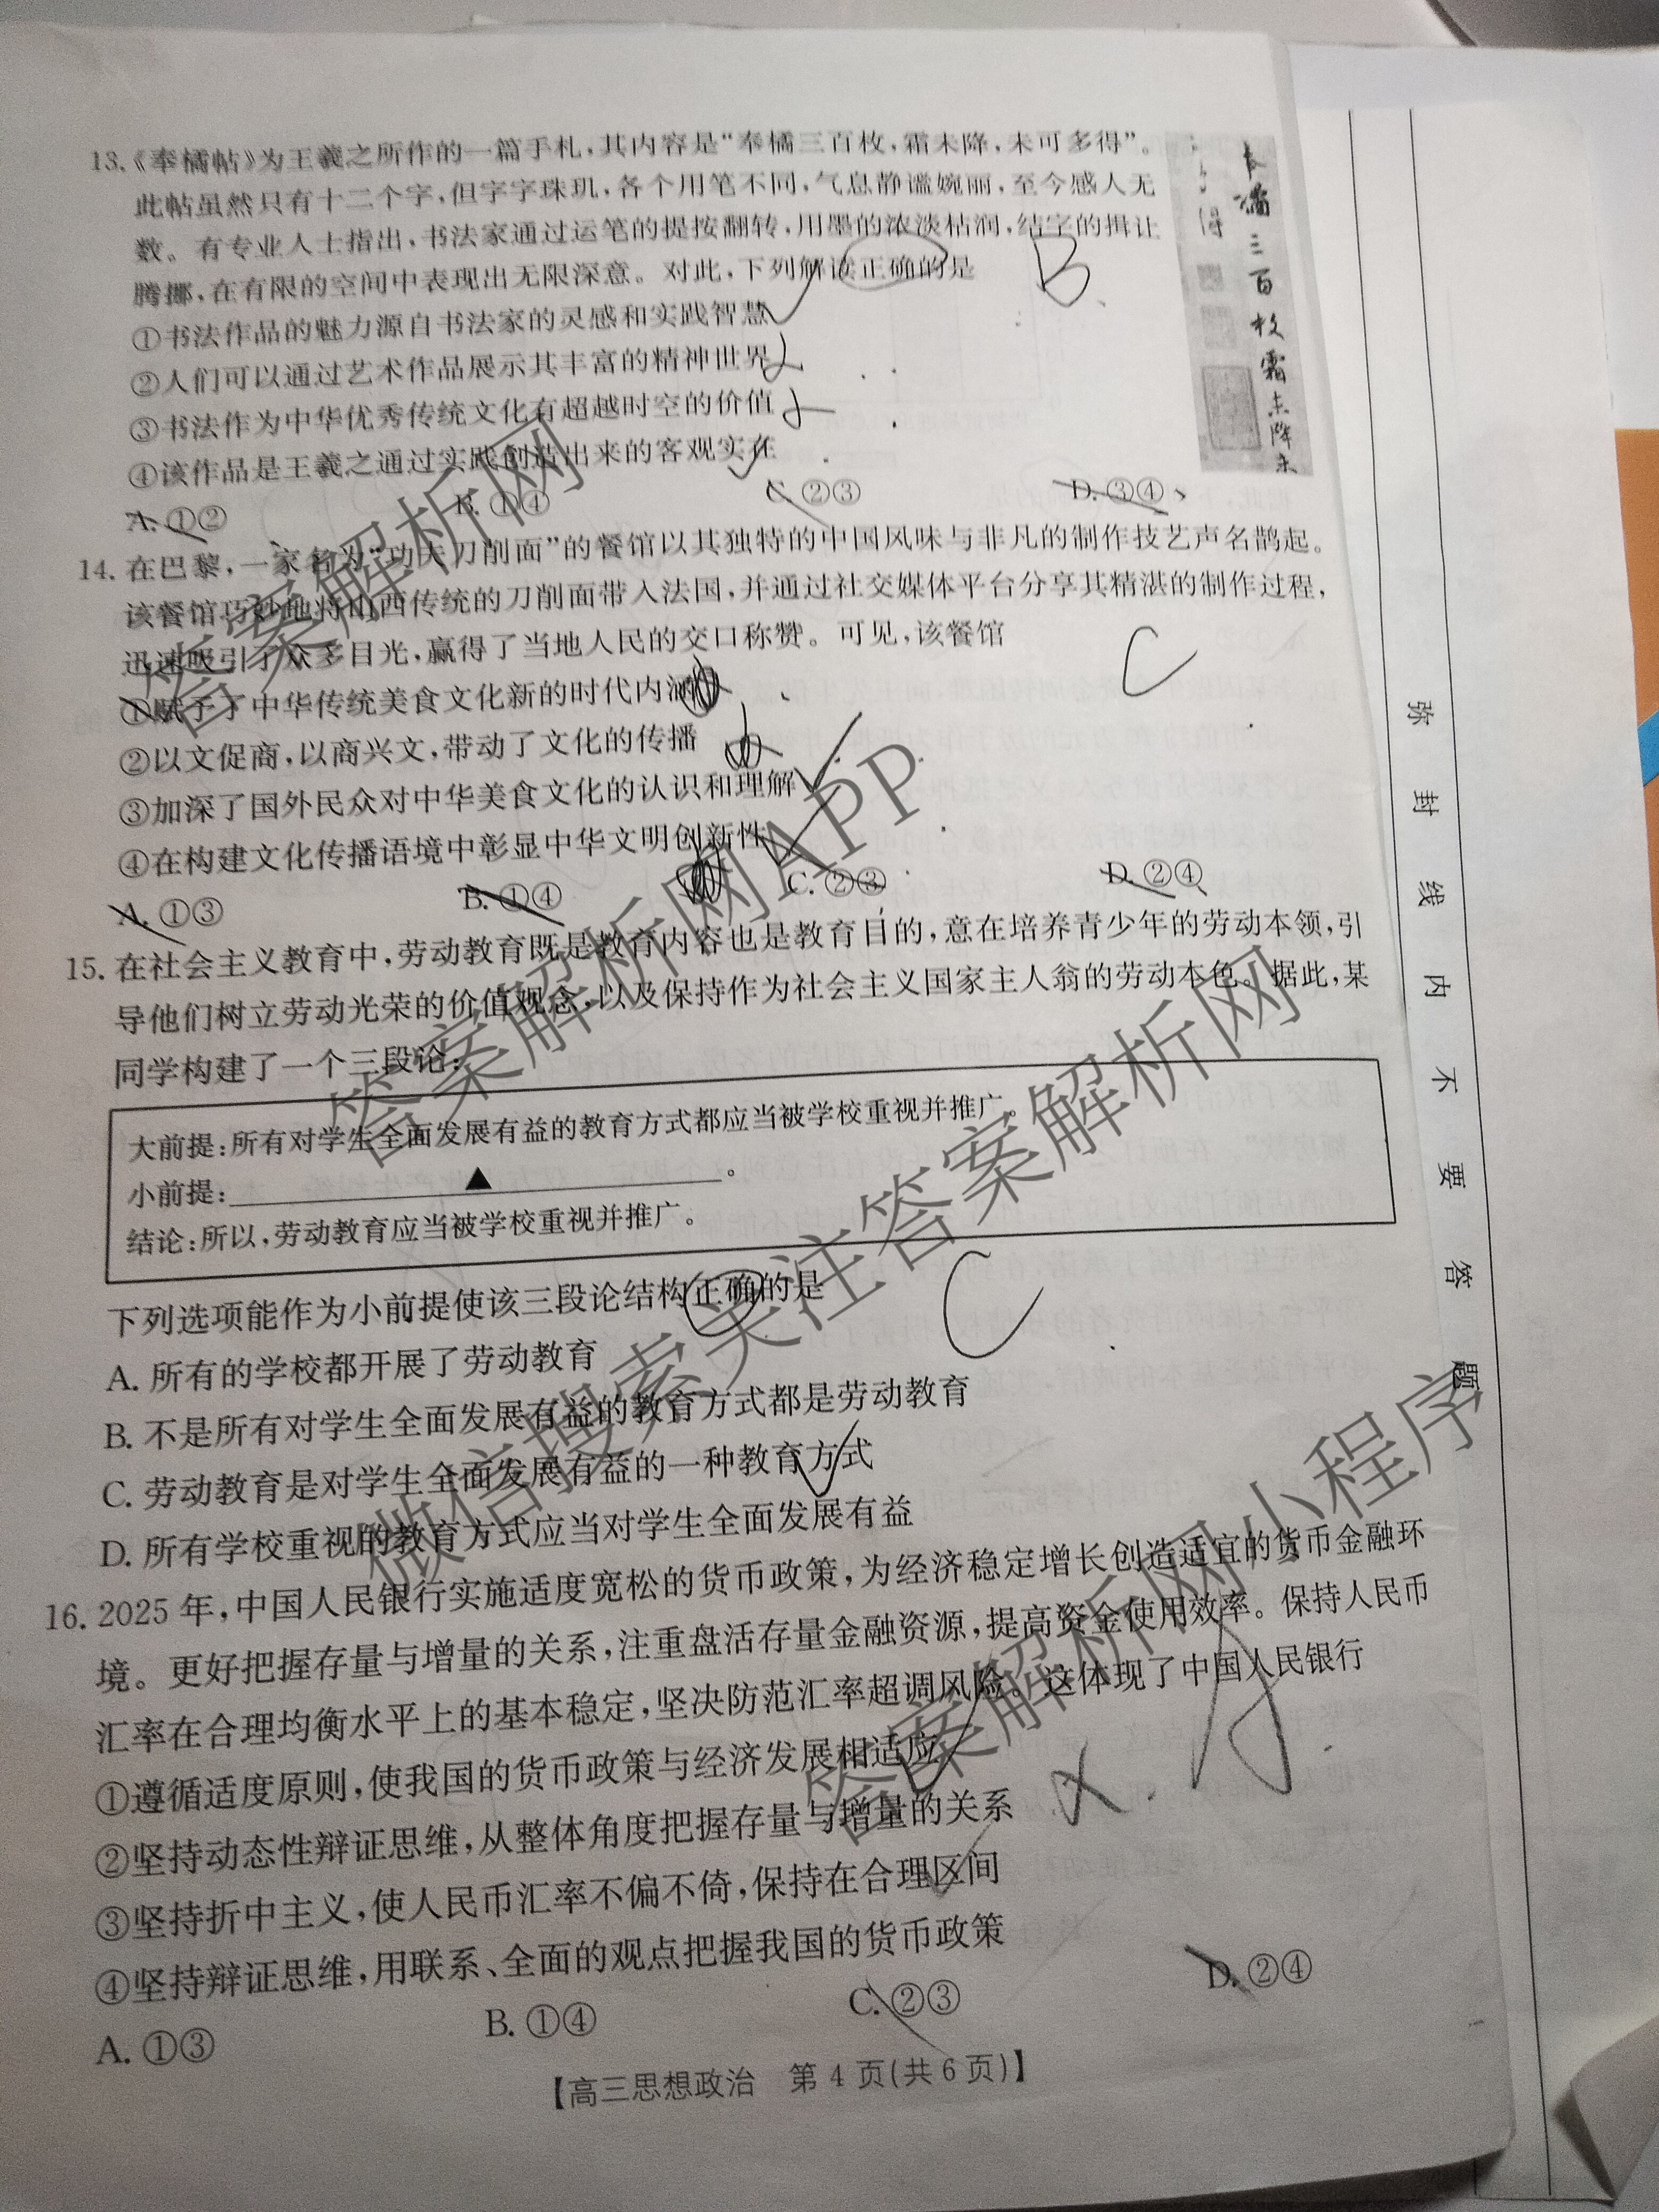 13.《奉橘帖》为王羲之所作的一篇手札,其内容是“奉橘三百枚,霜未降,未可多得”。
此帖虽然只有十二个字,但字字珠玑,各个用笔不同,气息静谧婉丽,至今感人无
数。有专业人士指出,书法家通过运笔的提按翻转,用墨的浓淡枯润,结字的揖让
腾挪,在有限的空间中表现出无限深意。对此,下列解读正确的是
B
①书法作品的魅力源自书法家的灵感和实践智慧
②人们可以通过艺术作品展示其丰富的精神世界
③书法作为中华优秀传统文化有超越时空的价值
④该作品是王羲之通过实践创造出来的客观实在
A. ①② B. ①④ C. ②③ D. ③④
三百枚霜未降未
14. 在巴黎,一家名为“功夫刀削面”的餐馆以其独特的中国风味与非凡的制作技艺声名鹊起。
该餐馆巧妙地将山西传统的刀削面带入法国,并通过社交媒体平台分享其精湛的制作过程,
迅速吸引了众多目光,赢得了当地人民的交口称赞。可见,该餐馆
C
①赋予了中华传统美食文化新的时代内涵
②以文促商,以商兴文,带动了文化的传播
③加深了国外民众对中华美食文化的认识和理解
④在构建文化传播语境中彰显中华文明创新性
A. ①③ B. ①④ C. ②③ D. ②④
15. 在社会主义教育中,劳动教育既是教育内容也是教育目的,意在培养青少年的劳动本领,引
导他们树立劳动光荣的价值观念,以及保持作为社会主义国家主人翁的劳动本色。据此,某
同学构建了一个三段论:
大前提:所有对学生全面发展有益的教育方式都应当被学校重视并推广。
小前提:▲。
结论:所以,劳动教育应当被学校重视并推广。
下列选项能作为小前提使该三段论结构正确的是
C
A. 所有的学校都开展了劳动教育
B. 不是所有对学生全面发展有益的教育方式都是劳动教育
C. 劳动教育是对学生全面发展有益的一种教育方式
D. 所有学校重视的教育方式应当对学生全面发展有益
16. 2025 年,中国人民银行实施适度宽松的货币政策,为经济稳定增长创造适宜的货币金融环
境。更好把握存量与增量的关系,注重盘活存量金融资源,提高资金使用效率。保持人民币
汇率在合理均衡水平上的基本稳定,坚决防范汇率超调风险。这体现了中国人民银行
A
①遵循适度原则,使我国的货币政策与经济发展相适应
②坚持动态性辩证思维,从整体角度把握存量与增量的关系
③坚持折中主义,使人民币汇率不偏不倚,保持在合理区间
④坚持辩证思维,用联系、全面的观点把握我国的货币政策
A. ①③ B. ①④ C. ②③ D. ②④
【高三思想政治 第 4 页(共 6 页)】
弥封线内不要答题
答案解析网
答案解析网APP
微信搜索关注答案解析网
答案解析网小程序